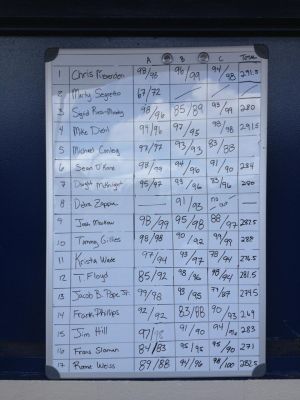 A B C TOTAL
1 Chris 98/98 96/99 94/98 291.5
2 Marty Segretto 67/72
3 98/96 85/89 93/99 280
4 Mike Diehl 99/96 97/95 98/98 291.5
5 Michael Conley 77/77 93/93 83/83
6 Sean O'Kane 98/99 94/96 91/90 284
7 Dwight McKnight 95/92 93/96 280
8 Debra Zappia — 91/93
9 Josh 98/99 95/98 88/97 287.5
10 Timmy Gilles 98/98 90/92 99/99 288
11 Krista Wade 97/94 93/97 78/94 276.5
12 T Floyd 85/92 98/96 281.5
13 Jacob B. Pope Jr. 99/98 93/95 274.5
14 Frank Phillips 92/92 83/88 90/93 269
15 Jim Hill 91/90 283
16 Frans 84/83 95/95 95/90 271
17 Rome Weiss 89/88 94/96 98/100 282.5